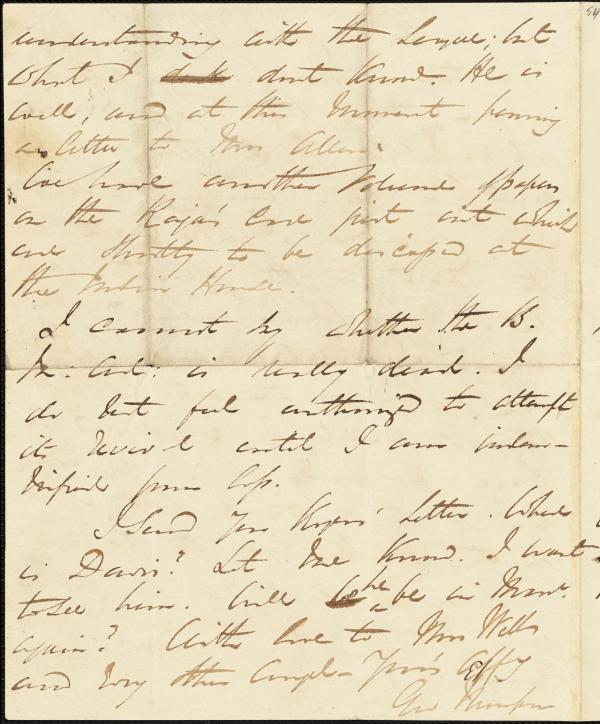 54
understanding with the League; but
what I do dont know. He is
well, and at this moment penning
a letter to Mrs Allen.
We have another volume of papers
on the Raja's case just out which
are shortly to be discussed at
the India House.
I cannot say whether the B.
In: is really dead. I
do not feel authorized to attempt
its revival until I am indem-
nified from loss.
I send you Rogers' Letter. Where
is Davis? Let me know. I want
to see him. Will he be in Manr.
again? With love to Mrs Webb
and every other Yours Affy
Geo Thompson